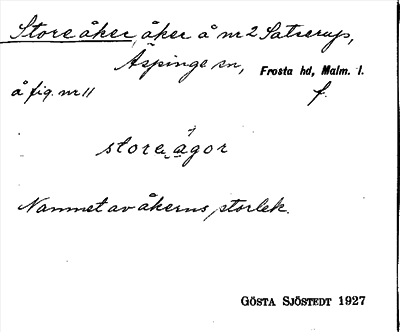 Store åker, åker å nr 2 Satserup,
Äspinge sn, Frosta hd, Malm. l.
å fig. nr 11 f.
store, agor
Namnet av åkerns storlek.
GÖSTA SJÖSTEDT 1927